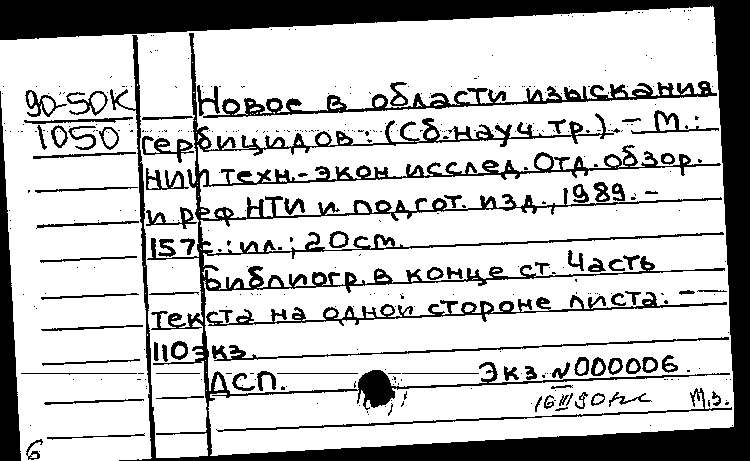 90-50К
1050
Новое в области изыскания
гербицидов: (Сб. науч. тр.). - М.:
НИИ техн.-экон исслед. Отд. обзор.
и реф НТИ и подгот. изд., 1989. -
157с.: ил.; 20см.
Библиогр. в конце ст. Часть
текста на одной стороне листа. -
110экз.
ДСП.
Экз. N000006.
16 III 90
М.З.
6